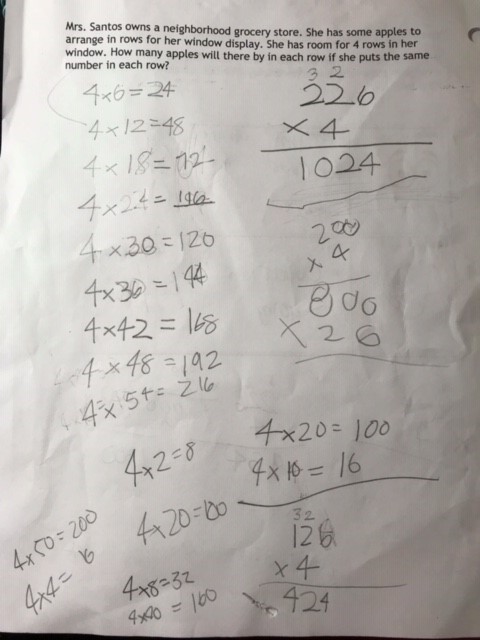 Mrs. Santos owns a neighborhood grocery store. She has some apples to
arrange in rows for her window display. She has room for 4 rows in her
window. How many apples will there by in each row if she puts the same
number in each row?
4x6=24
4x12=48
4x18=72
4x24=
4x30=120
4x36=144
4x42=168
4x48=192
4x54=216
4x2=8
4x20=100
4x50=200
4x4=16
4x8=32
4x40=160
3 2
226
x4
1024
200
x4
800
x26
4x20=100
4x10=16
32
126
x4
424